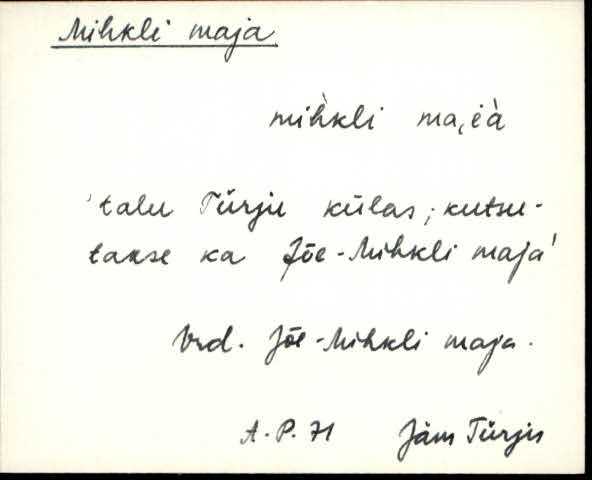 Mihkli maja
mìhkli ma,i̯à
'talu Türju külas; kutsu-
takse ka Jõe-Mihkli maja'
Vrd. Jõe-Mihkli maja.
A.P. 71 Jäm Türju